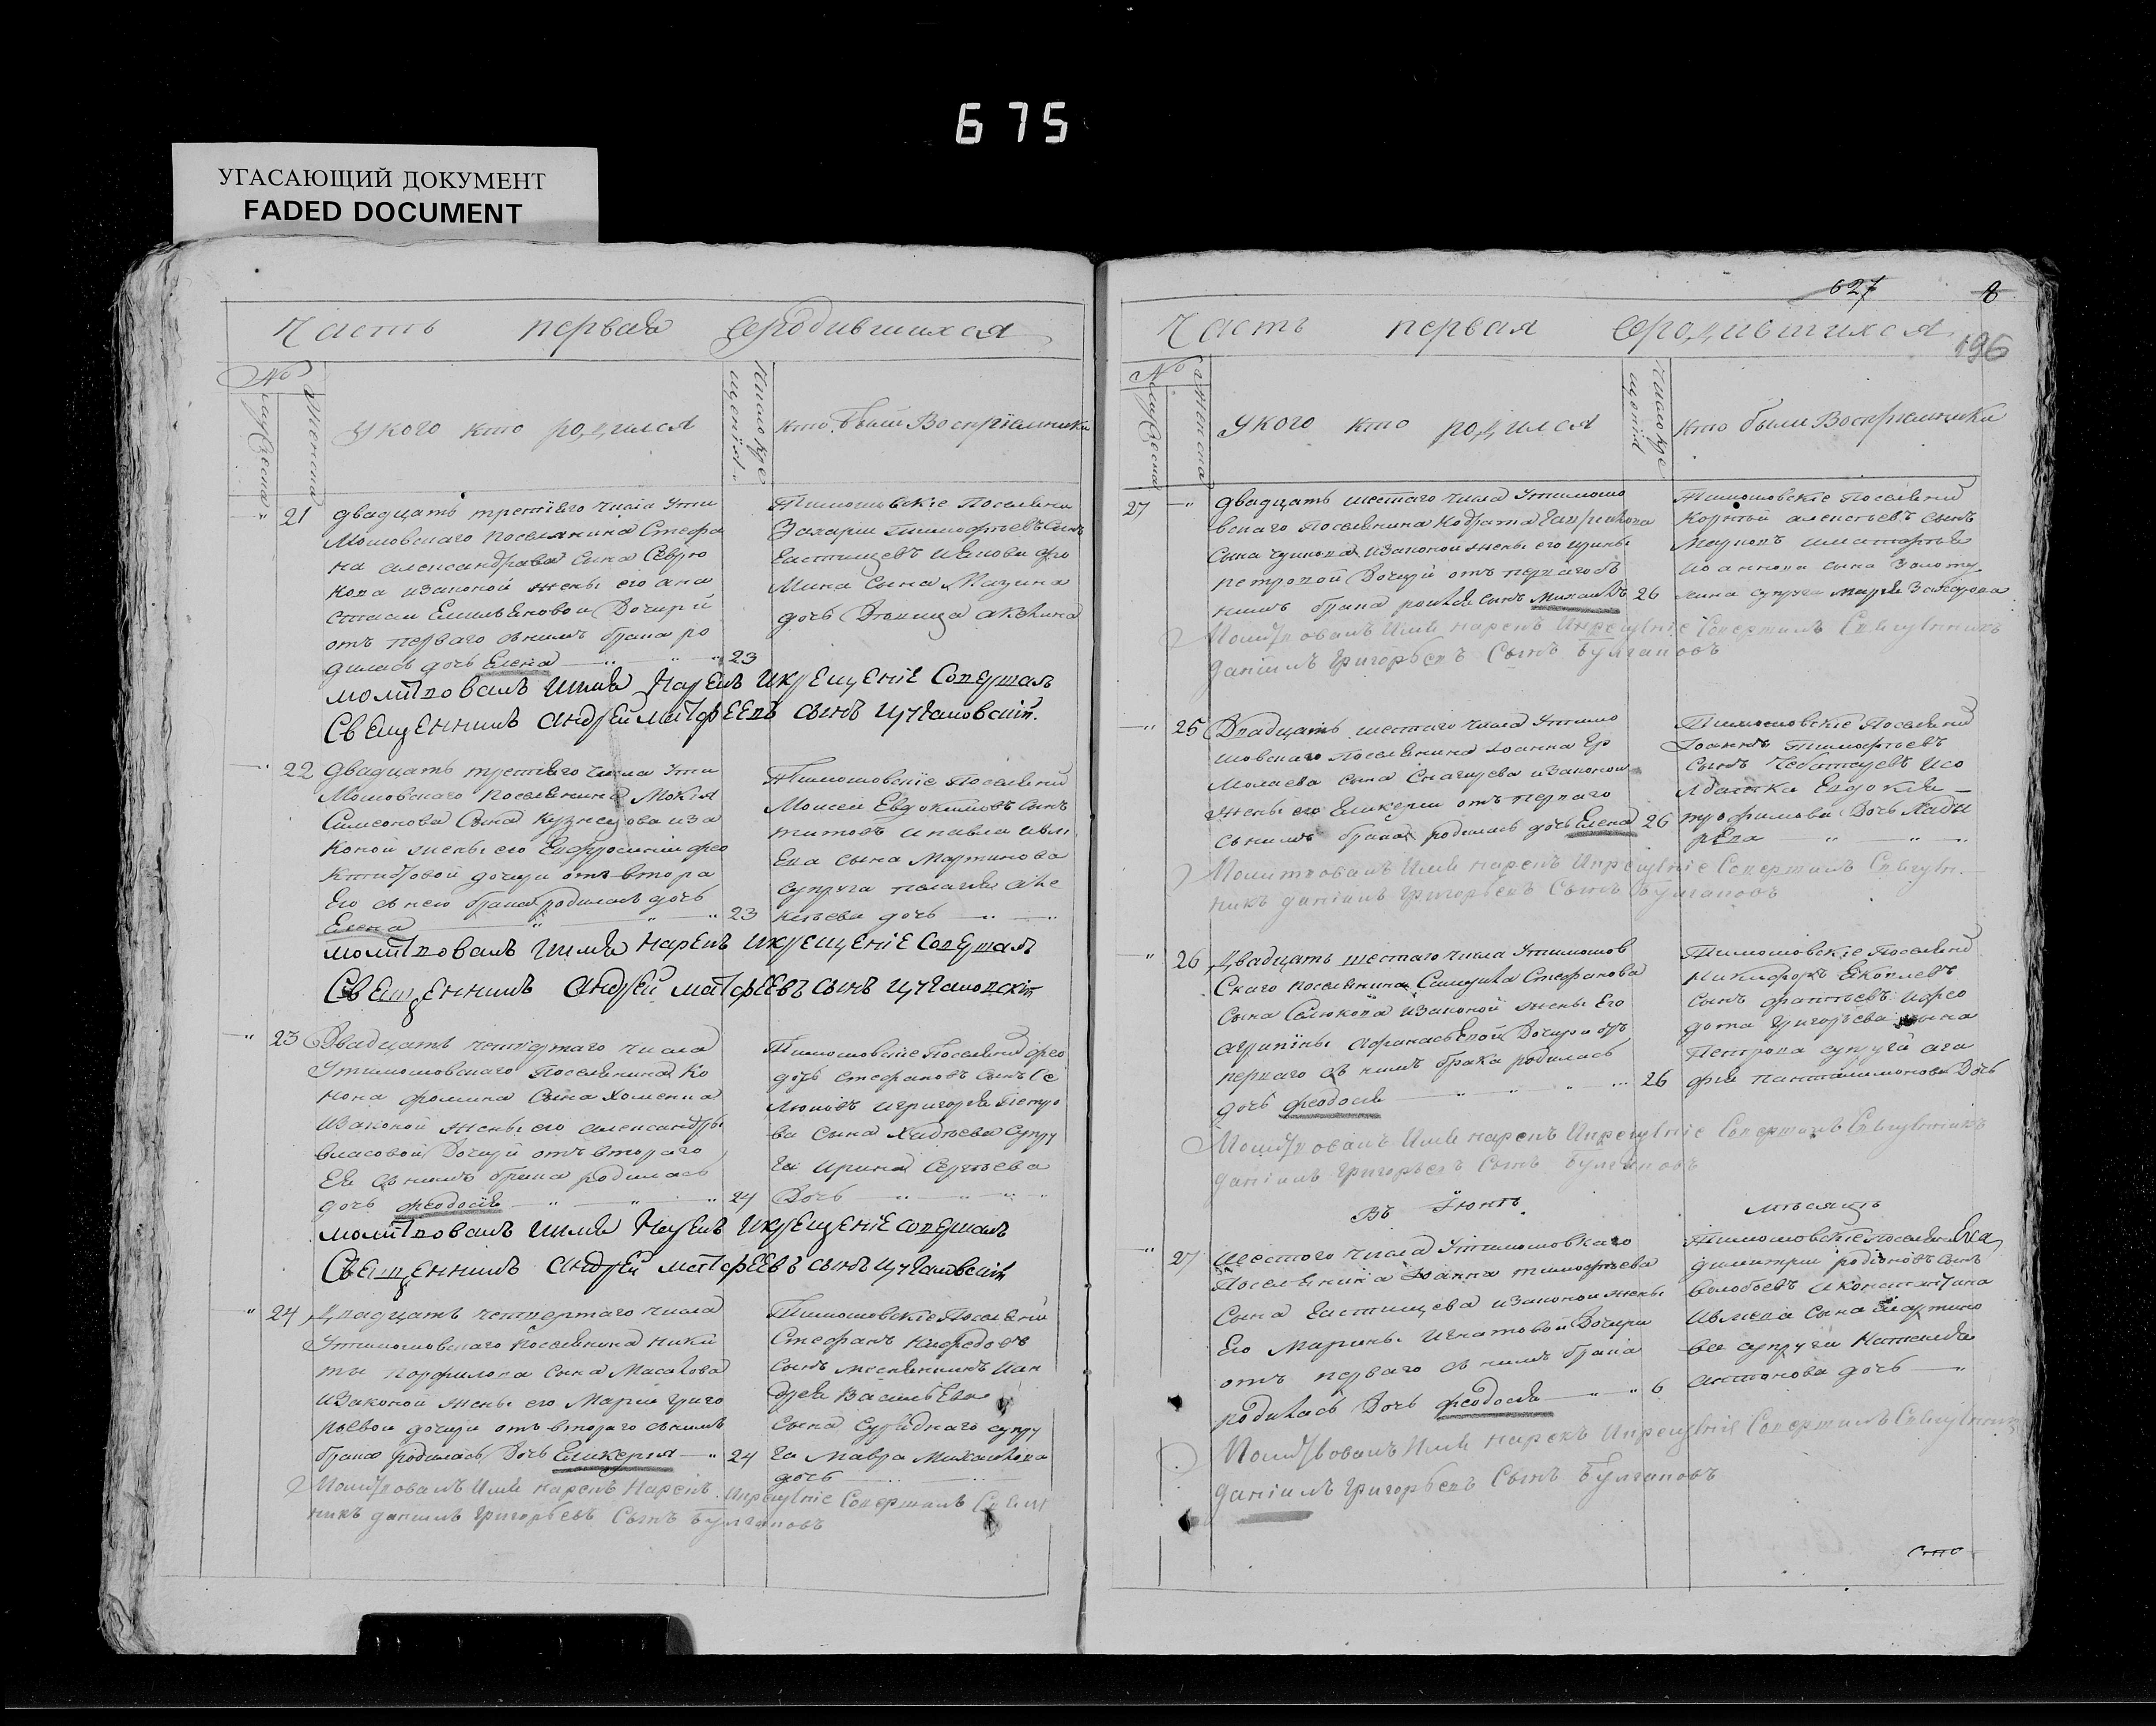 675
УГАСАЮЩИЙ ДОКУМЕНТ
FADED DOCUMENT
Часть первая Ѡродившихся
№
Мужеска
Женска
У кого кто родился
Число кре
щенїя
кто были Восприемники
21
двадцать третіяго числа Ути
мошовскаго поселянина Стефа
на александрава сына Севрю
кова изаконой жены его ана
стасии Емильяновои Дочери
отъ перваго снимъ брака ро
дилась дочь Елена
23
Тимошовскіе Поселяни
Захарии Тимофѣевъ сынъ
Евстищевъ
Мина сына Мазина
дочь Девица акилина
молитвовалъ имя нарекъ икрещеніе совершалъ
Священникъ Андрей матфеевъ сынъ
22
двадцать третяго числа Ути
мошовскаго поселянина Мокія
Симеонова Сына кузнецова иза
коной жены его Евфросиніи фео
ктистовой дочери отъ втора
Его снею брака родилась дочь
Елена
23
Тимошовскіе Поселяни
Моисей Евдокимовъ сынъ
титовъ ипавла ивл
Ева сына Мартинова
супруга пелагия але
ксѣева дочь
молитвовалъ имя нарекъ икрещеніе совершалъ
Священникъ Андрей матфеевъ сынъ
23
Двадцать четвертаго числа
Утимошовскаго Поселянина Ко
нона фомина Сына Хоменка
Изаконой жены его александры
власовой Дочери отъ втораго
Ея снимъ брака родилась
дочь феодосія
24
Тимошовскіе Поселяни фео
доръ стефановъ сынъ Се
люковъ игригорія Петро
ва сына Хадѣева супру
га Ирина Сергѣева
Дочь
молитвовалъ имя нарекъ икрещеніе совершалъ
Священникъ Андрей матфеевъ сынъ
24
Двадцать четвертаго числа
Утимошовскаго Поселянина ники
ты порфилова сына Масалова
изаконой жены его Марии григо
рьевои дочери отъ втораго снимъ
брака родилась Дочь Гликерия
24
Тимошовскіе Поселяни
Стефанъ нефедовъ
сынъ иан
дрея Васильева
сына супру
га Мавра Михаилова
дочь
Молитвовалъ Имя нарекъ Нарекъ Икрещеніе Совершалъ Свящ
никъ даниилъ Григорьевъ Сынъ Булгаковъ
627
8
196
Часть первая Ѡродившихся
№
Мужеска
Женска
У кого кто родился
Число кре
щенія
кто были Восприемники
27
двадцать шестаго числа Утимошо
вскаго Поселянина Кодрата Гаврилова
Сына изаконой жены его ирины
петровой Дочери отъ перваго съ
нимъ брака родился сынъ Михаилъ
26
Тимошовскіе поселяни
алексѣевъ сынъ
иматфея
иоаннова сына Золоту
хина супруга марія Захарова
Молитвовалъ Имя нарекъ Икрещеніе Совершалъ Священникъ
даніилъ Григорьевъ Сынъ Булгаковъ
25
Двадцать шестаго числа Утимо
шовскаго поселянина иоанна Ер
молаева сына Снагищева изаконой
жены его Гликерии отъ перваго
снимъ брака родилась дочь Елена
26
Тимошовскіе Поселяни
Іоаннъ Тимофѣевъ
сынъ исо
лдатка Евдокия
трофимова Дочь
Молитвовалъ Имя нарекъ Икрещеніе Совершалъ Священ
никъ даніилъ Григорьевъ Сынъ Булгаковъ
26
Двадцать шестаго числа Утимошов
Скаго поселянина Самуила Стефанова
Сына Селюкова изаконой жены Его
агрипины афанасьевой Дочери отъ
перваго съ нимъ брака родилась
дочь феодосія
26
Тимошовскіе Поселяни
никифоръ Яковлевъ
сынъ ифео
дота григорьева сына
Петрова супруга ага
фия панталимонова Дочь
Молитвовалъ Имя нарекъ Икрещеніе Совершалъ Священникъ
даніилъ Григорьевъ Сынъ Булгаковъ
Въ Іюнѣ мѣсяцѣ
27
Шестого числа Утимошовскаго
Поселянина иоанна тимофѣева
Сына Евстищева изаконои жены
Его Марины игнатовой Дочери
отъ перваго снимъ брака
родилась Дочь феодосія
6
Тимошовскіе поселяне
димитрии родіоновъ сынъ
волобоевъ иконстантина
сына Мартино
ва супруга Наталия
антонова дочь
Молитвовалъ Имя нарекъ Икрещеніе Совершалъ Священникъ
даніилъ Григорьевъ Сынъ Булгаковъ